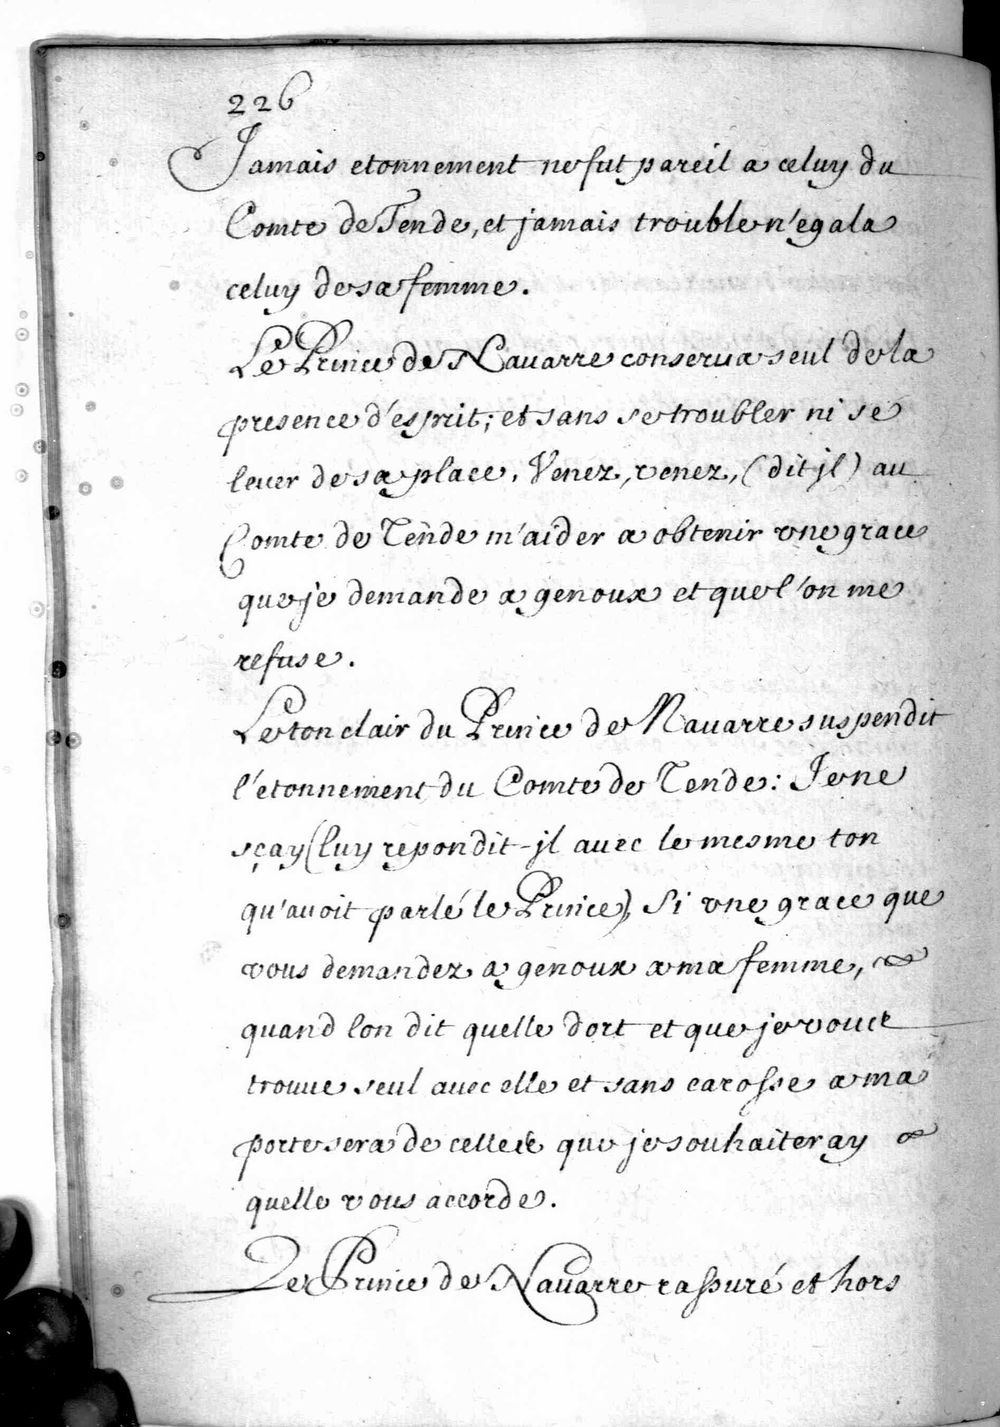 226
Jamais etonnement ne fut pareil a celuy du
Comte de Tende, et jamais trouble n'egala
celuy de sa femme.
Le Prince de Navarre conserva seul de la
presence d'esprit; et sans se troubler ni se
lever de sa place, Venez, venez, (dit jl) au
Comte de Tende m'aider a obtenir vne grace
que je demande a genoux et que l'on me
refuse.
Le ton clair du Prince de Navarre suspendit
l'étonnement du Comte de Tende: Je ne
sçay (luy repondit-jl avec le mesme ton
qu'avoit parlé le Prince), Si vne grace que
vous demandez a genoux a ma femme,
quand lon dit quelle dort et que je vous
trouve seul avec elle et sans carosse a ma
porte sera de celles que je souhaiteray
quelle vous accorde.
Le Prince de Navarre rassuré et hors